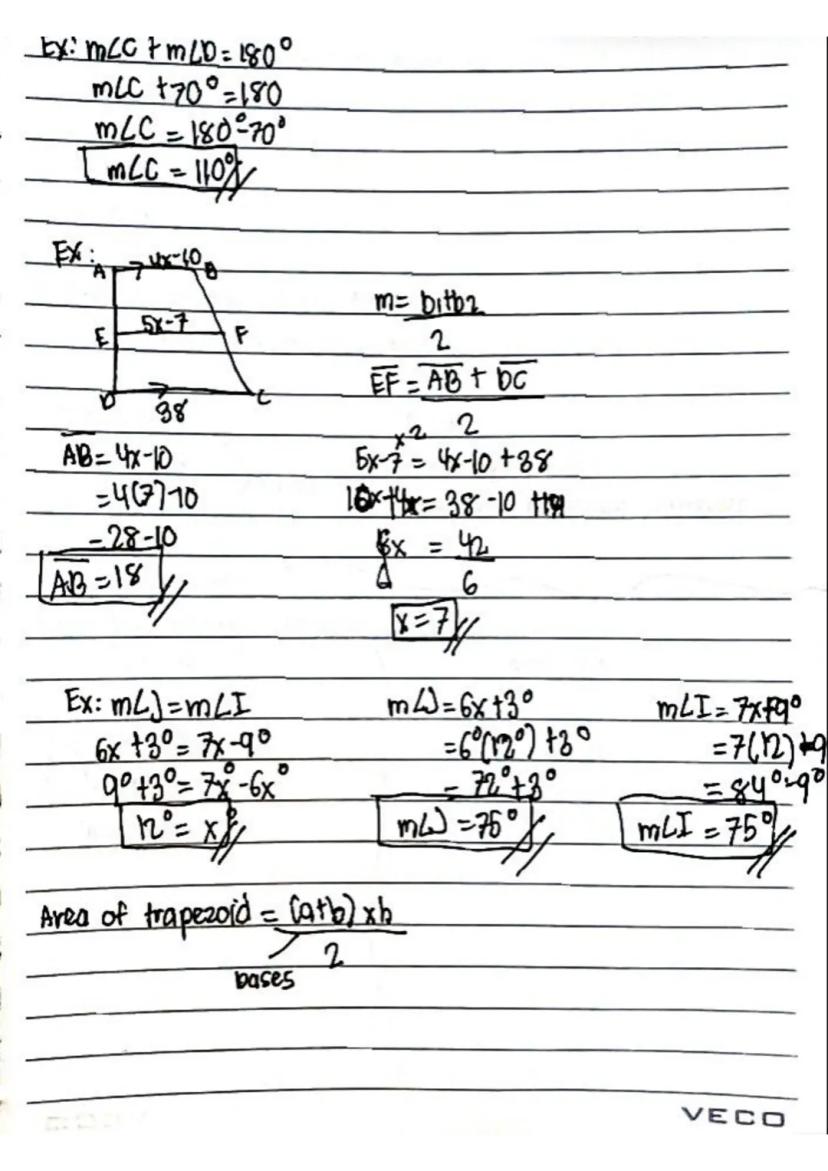 Ex: m∠C + m∠D = 180°
m∠C + 70° = 180
m∠C = 180° - 70°
m∠C = 110°
Ex:
A 4x-10 B
E 5x-7 F
D 38 C
m = b1+b2
2
EF = AB + DC
2
AB = 4x-10
= 4(7)-10
= 28-10
AB = 18
x2
5x-7 = 4x-10 +38
10x+4x = 38 -10 +14
6x = 42
6
x = 7
Ex: m∠J = m∠I
6x + 3° = 7x - 9°
9° + 3° = 7x° - 6x°
12° = x°
m∠J = 6x + 3°
= 6°(12°) + 3°
= 72° + 3°
m∠J = 75°
m∠I = 7x-9°
= 7(12)-9
= 84°-9°
m∠I = 75°
Area of trapezoid = (a+b) x h
2
bases
VECO